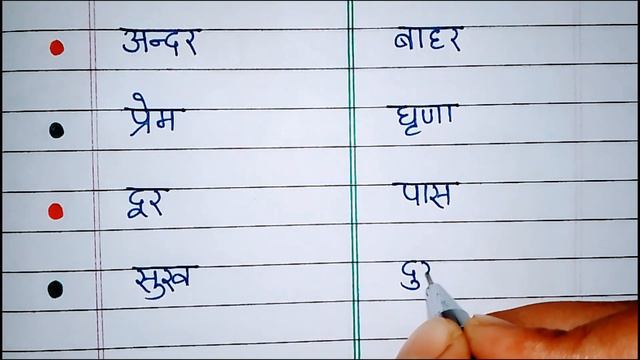 अन्दर बाहर
प्रेम घृणा
दूर पास
सुख दु